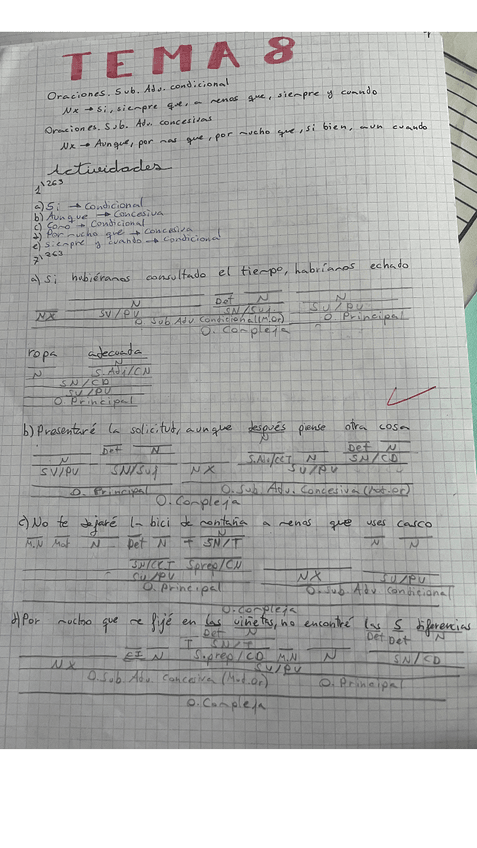 TEMA 8
Oraciones. Sub. Adv. condicional
Nx → Si, siempre que, a menos que, siempre y cuando
Oraciones. Sub. Adv. concesivas
Nx → Aunque, por mas que, por mucho que, si bien, aun cuando
Actividades
1\263
a) Si → Condicional
b) Aunque → Concesiva
c) Como → Condicional
d) Por mucho que → Concesiva
e) Siempre y cuando → Condicional
7\263
a) Si hubiéramos consultado el tiempo, habríamos echado
N Det N N
NX SV/PV SN/Suj SV/PV
O. Sub Adv Condicional (M.Or) O Principal
O. Compleja
ropa adecuada
N N
S.Adj/CN
SN/CD
SV/PV
O. Principal
b) Presentaré la solicitut, aunque después piense otra cosa
N Det N N Det N
SV/PV SN/Suj NX S.Adv/CCT N SN/CD
SV/PV
O. Principal O. Sub. Adv. Concesiva (Mod.Or)
O. Compleja
c) No te dejaré la bici de montaña a menos que uses casco
M.N Mat N Det N T SN/T N N
SN/CCT Sprep/CN
SV/PV NX SV/PV
O. Principal O. Sub Adv Condicional
O. compleja
d) Por mucho que me fijé en las viñetas, no encontré las 5 diferencias
Det N Det Det N
T SN/T
CI N S.prep/CD M.N N SN/CD
NX SV/PV
O. Sub Adv Concesiva (Mod.Or) O. Principal
O. Compleja